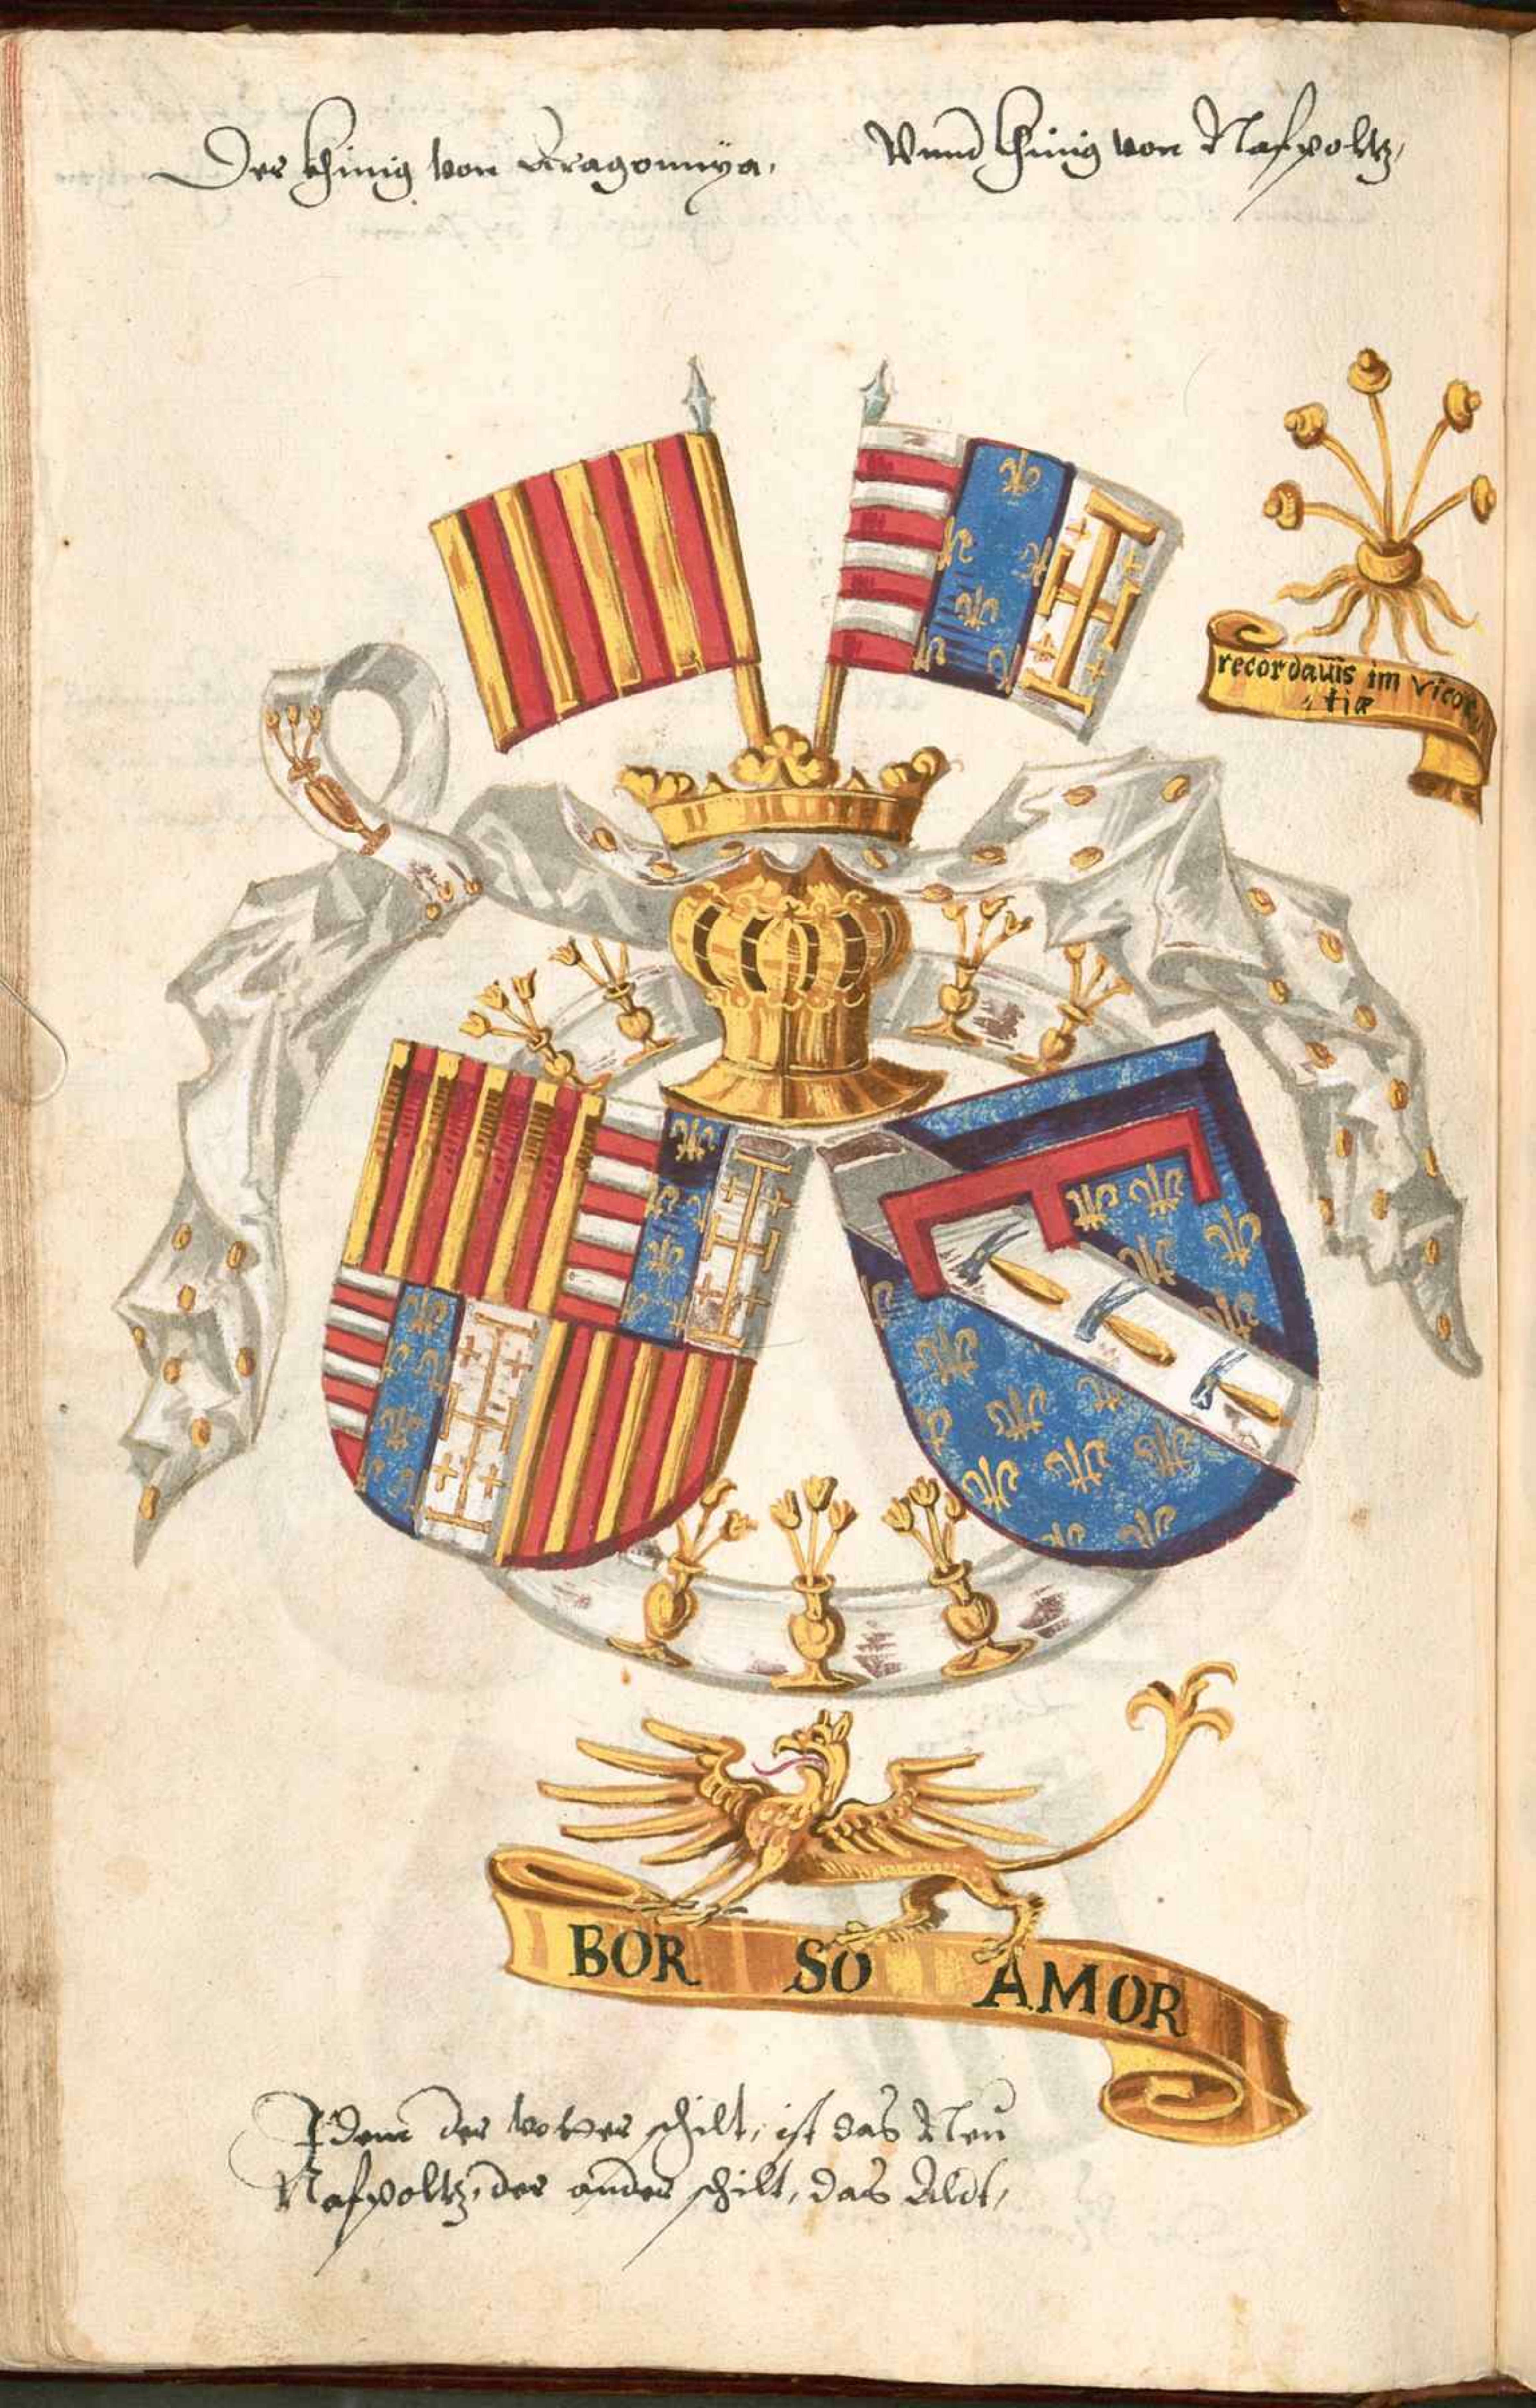 Der khinig von Arragonnya.
Vnnd khinig von Nasspoltz,
recordauis im vicor
tiæ
BOR SO AMOR
Idem der vorder schilt, ist das Neu
Nasspoltz, der ander schilt, das Aldt,